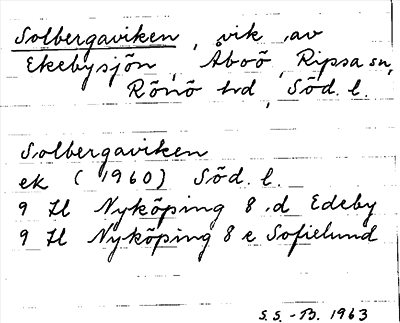 Solbergaviken, vik av
Ekebysjön, Åboö, Ripsa sn,
Rönö hd, Söd. l.
Solbergaviken
ek (1960) Söd. l.
9 H Nyköping 8 d Edeby
9 H Nyköping 8 e Sofielund
S.S. - B. 1963